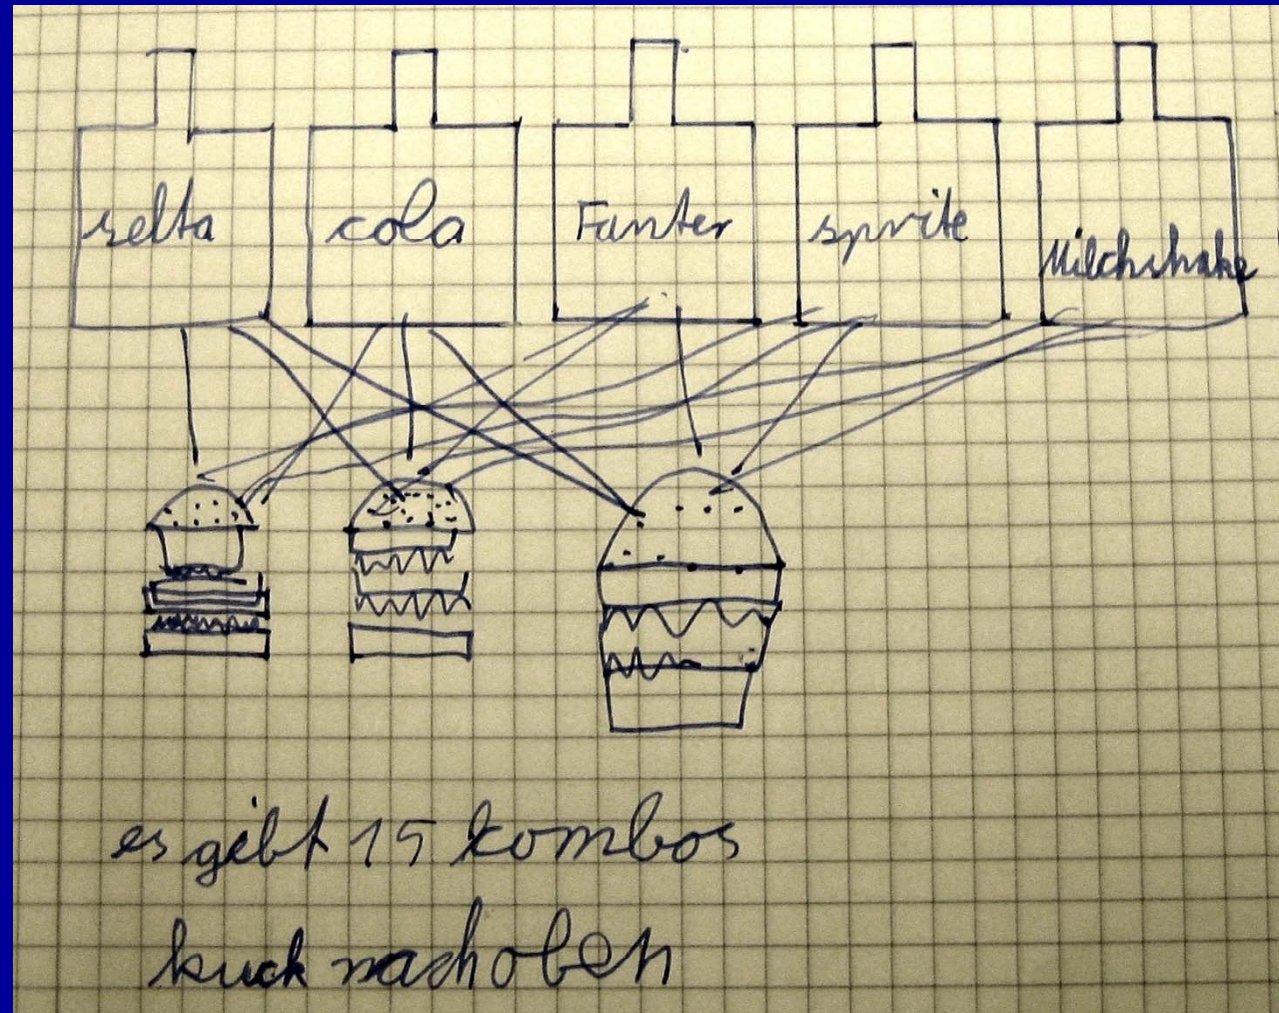 selta
cola
Fanter
sprite
Milchshake
es gibt 15 kombos
kuck nach oben